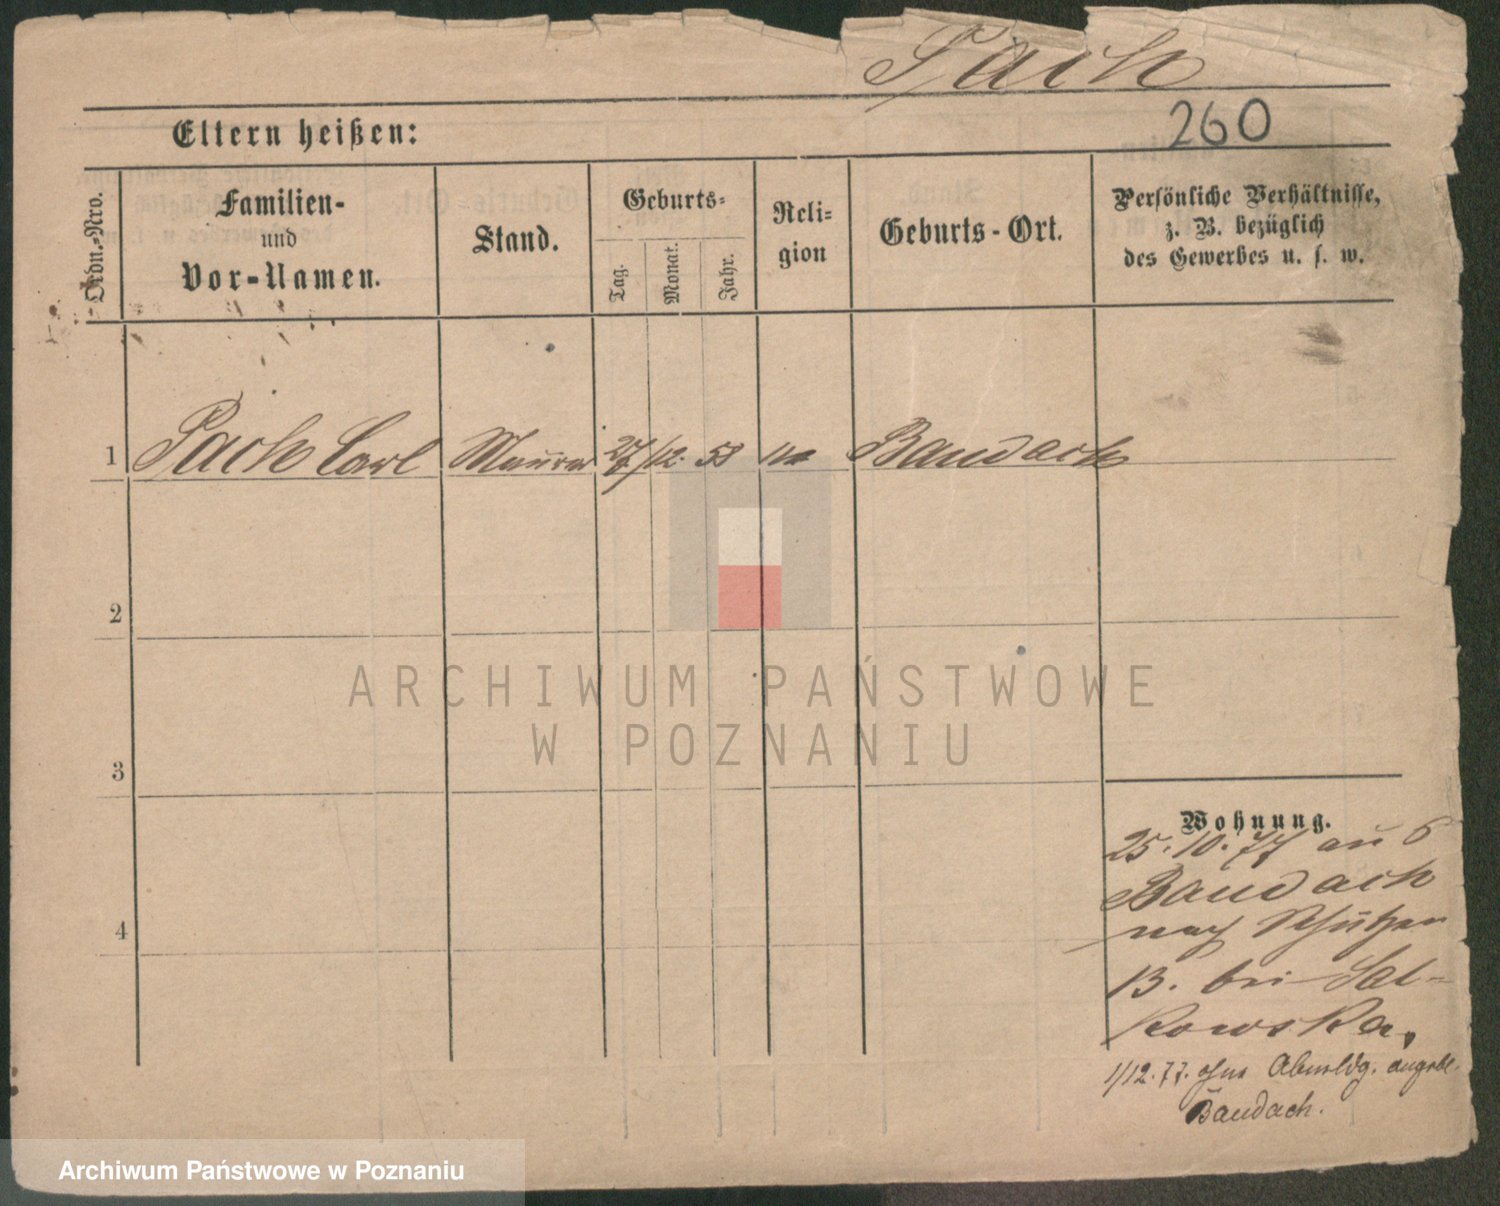 Pach
260
Eltern heißen:
Ordn.-Nro.
Familien-
und
Vor-Namen.
Stand.
Geburts-
Tag.
Monat.
Jahr.
Reli-
gion
Geburts-Ort.
Persönliche Verhältnisse,
z. B. bezüglich
des Gewerbes u. s. w.
1 Pach Carl Maurer 27/12. 58 Baudach
2
3
4
Wohnung.
25.10.77 6
Baudach
nach Schützen
13. bei Sal-
kowska,
1/12.77. ohne Abmeldg. angebl.
Baudach.
ARCHIWUM PAŃSTWOWE
W POZNANIU
Archiwum Państwowe w Poznaniu